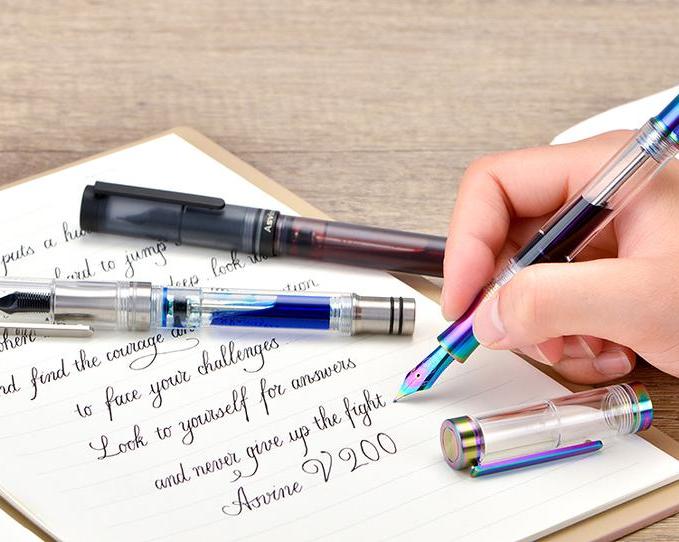 puts a
hard to jump
deep look
find the courage
to face your challenges
Look to yourself for answers
and never give up the fight
Asvine V200